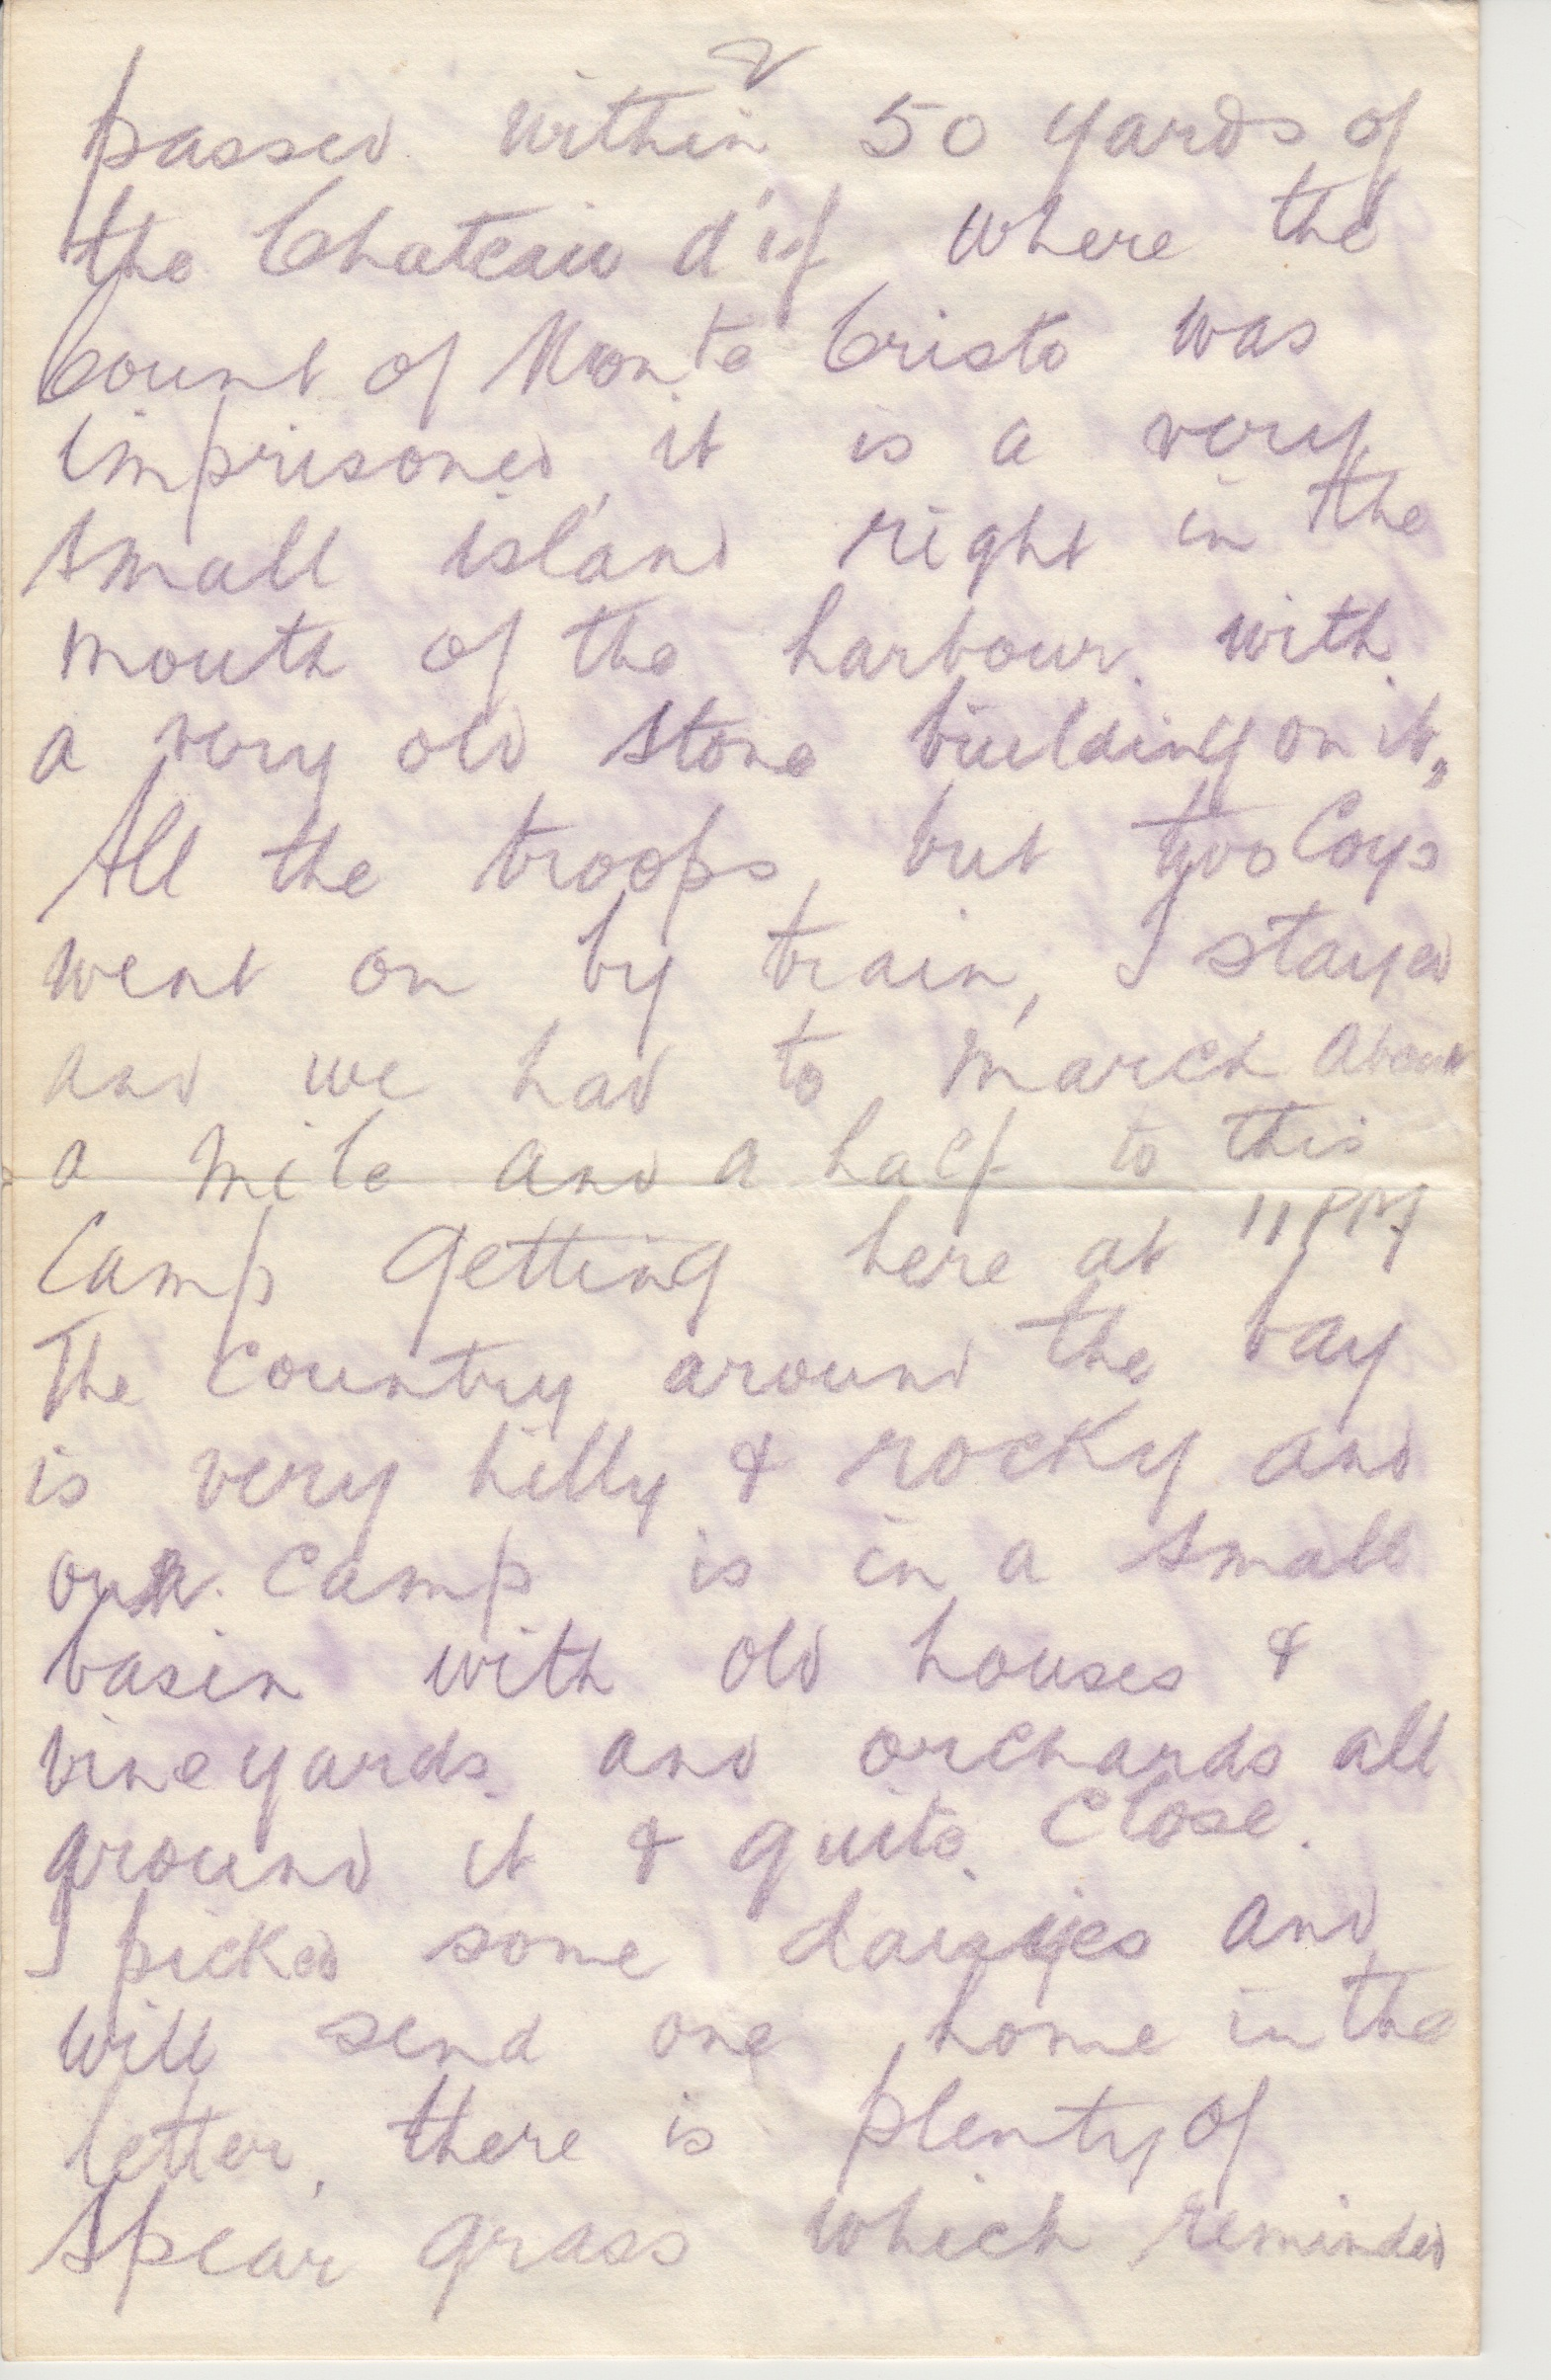 2
passed within 50 yards of
the Chateau d'if where the
Count of Monte Cristo was
imprisoned, it is a very
small island right in the
mouth of the harbour. with
a very old stone building on it,
All the troops, but two Coys
went on by train, I stayed
and we had to march about
a mile and a half to this
Camp getting here at 11 PM
The country around the bay
is very hilly & rocky and
our camp is in a small
basin with old houses &
vineyards and orchards all
around it & quite close.
I picked some daisyes and
will send one home in the
letter, there is plenty of
spear grass which reminded